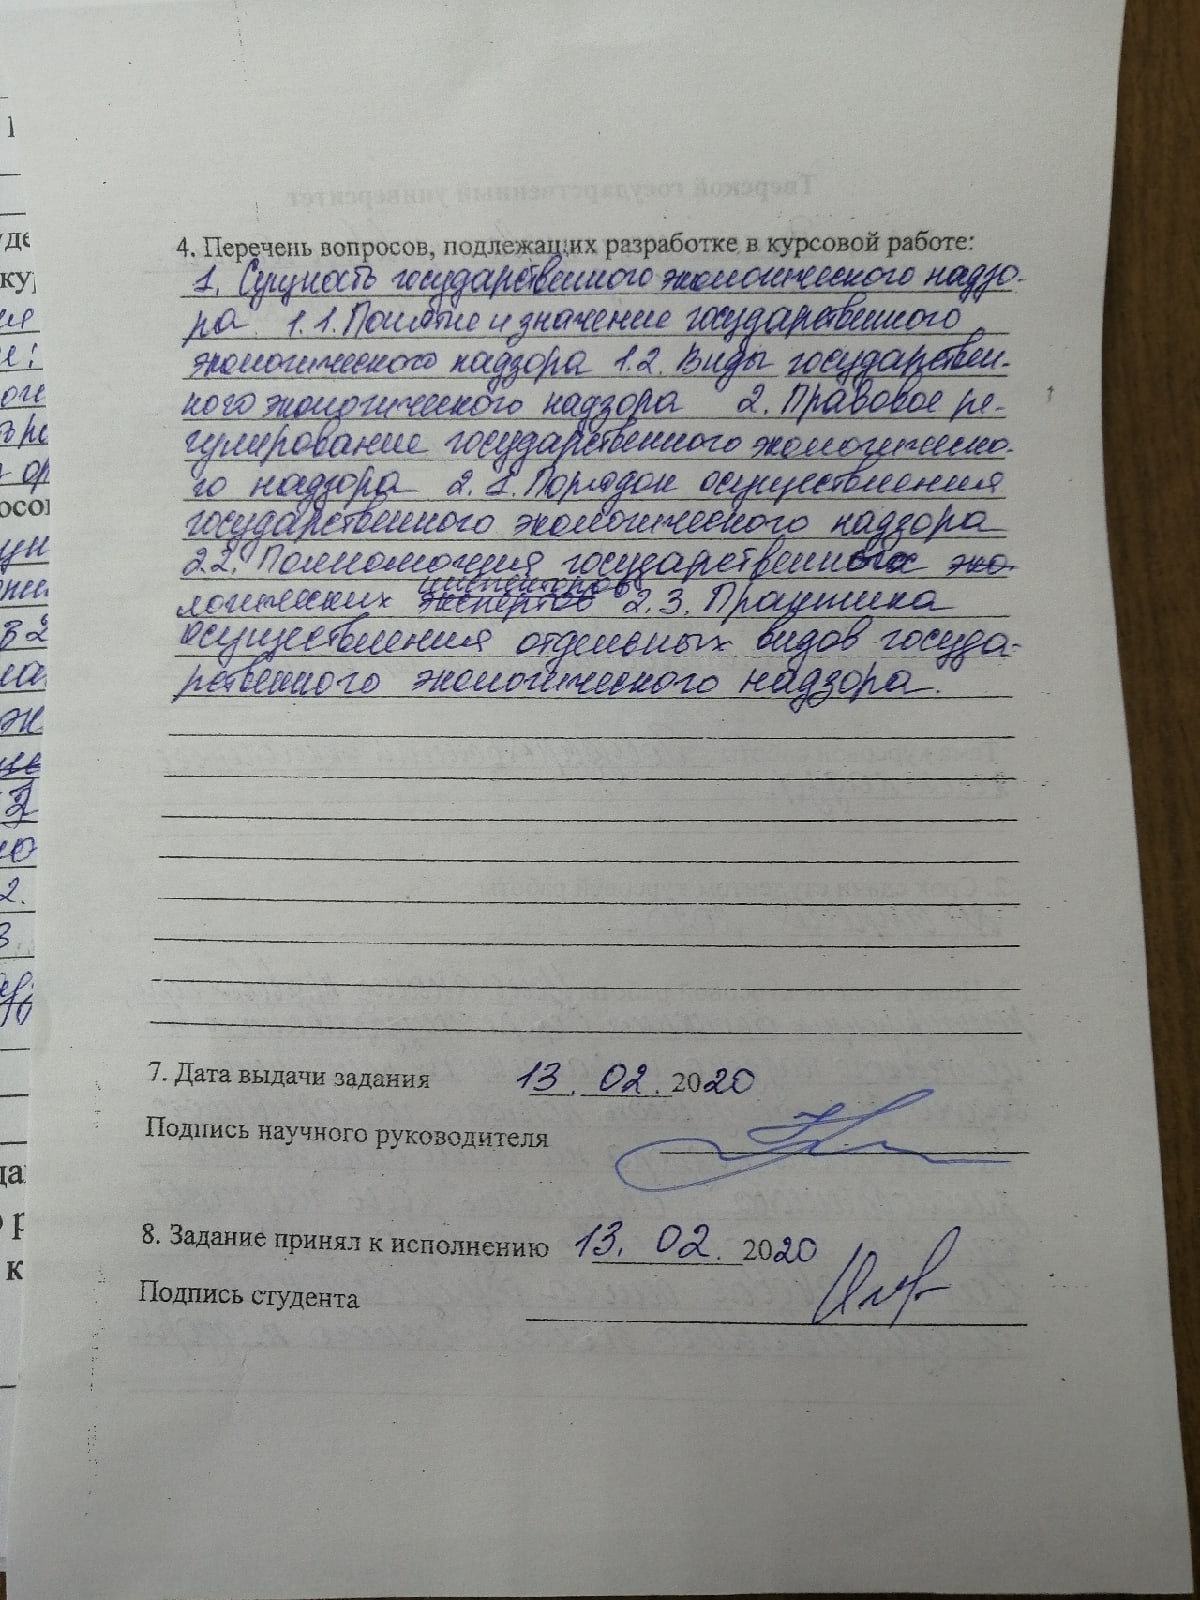 4. Перечень вопросов, подлежащих разработке в курсовой работе:
1. Сущность государственного экологического надзо-
ра 1.1. Понятие и значение государственного
экологического надзора 1.2. Виды государствен-
ного экологического надзора 2. Правовое ре-
гулирование государственного экологическо-
го надзора 2.1. Порядок осуществления
государственного экологического надзора
2.2. Полномочия государственных эко-
инспекторов
логических экспертов 2.3. Практика
осуществления отдельных видов госуда-
рственного экологического надзора.
7. Дата выдачи задания 13.02.2020
Подпись научного руководителя
8. Задание принял к исполнению 13.02.2020
Подпись студента